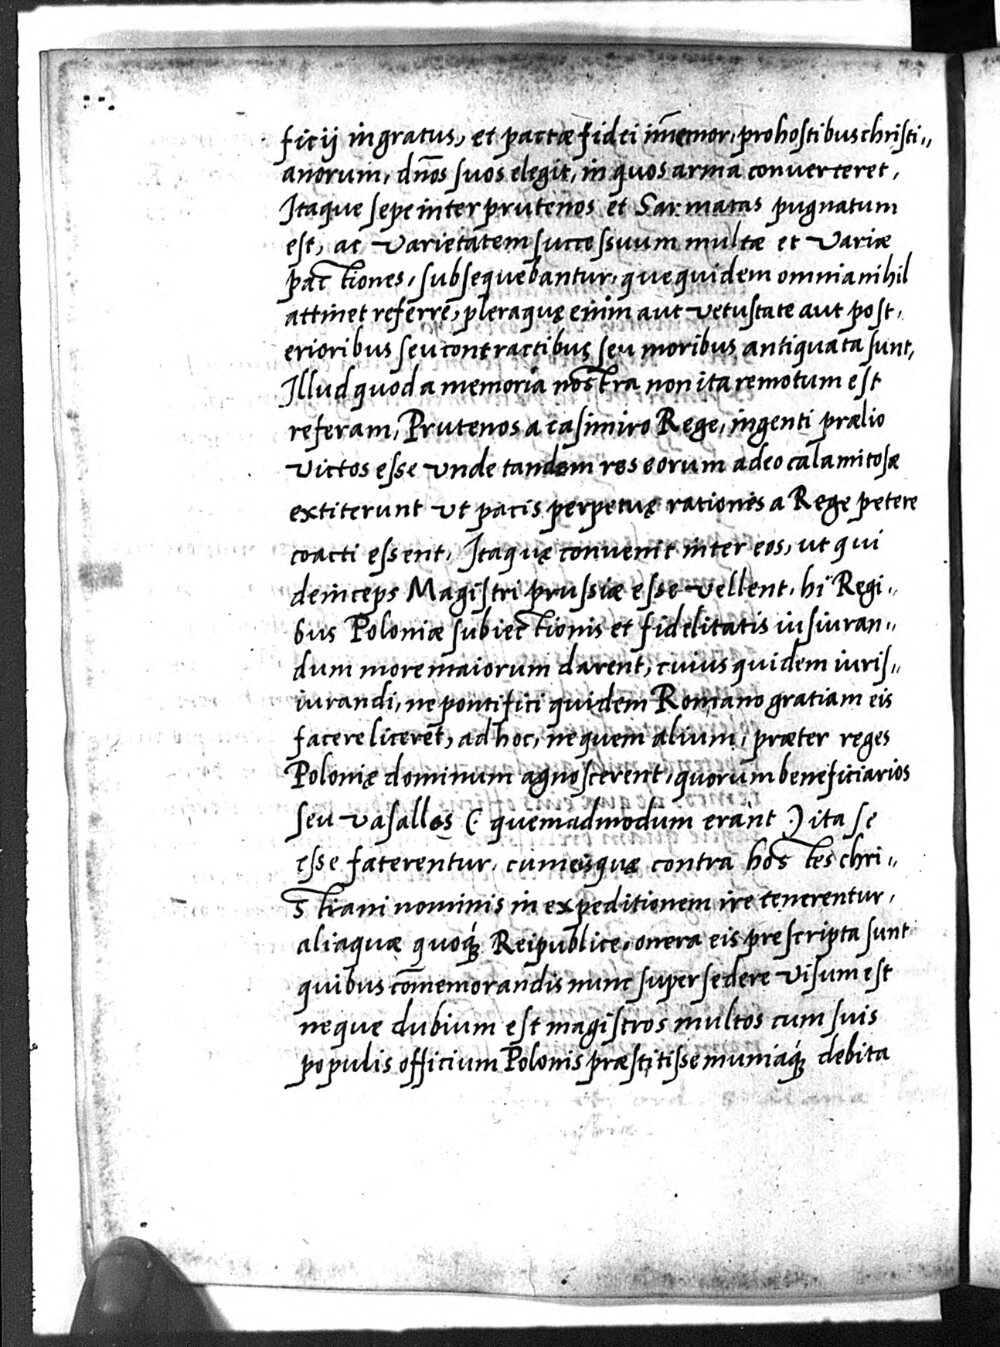 ficij ingratus, et pactæ fidei im̄emor, pro hostibus christi,,
anorum, dn̄os suos elegit, in quos arma converteret,
Itaque sepe inter prutenos et Sarmatas pugnatum
est, ac varietatem successuum multæ et variæ
pactiones, subsequebantur, que quidem omnia nihil
attinet referre, pleraquę enim aut vetustate aut post,
erioribus seu contractibus seu moribus antiquata sunt,
Illud quod a memoria nostra non ita remotum est
referam, Prutenos a casimiro Rege, ingenti prælio
victos esse vnde tandem res eorum adeo calamitosæ
extiterunt vt pacis perpetuę rationes a Rege petere
coacti essent, Itaquę convenit inter eos, ut qui
deinceps Magistri prussiæ esse vellent, hi Regi,,
bus Poloniæ subiectionis et fidelitatis iusiuran,,
dum more maiorum darent, cuius quidem iuris,,
iurandi, ne pontifici quidem Romano gratiam eis
facere liceret, ad hoc, ne quem alium, præter reges
Polonię dominum agnoscerent, quorum beneficiarios
seu vasallos (: quemadmodum erant :) ita se
esse faterentur, cum eisquę contra hostes chri,,
stiani nominis in expeditionem ire tenerentur,
aliaquæ quoq́ꝫ Reipublice, onera eis prescripta sunt
quibus com̄emorandis nunc supersedere visum est
neque dubium est magistros multos cum suis
populis officium Polonis præstitisse muniaq́ꝫ debita